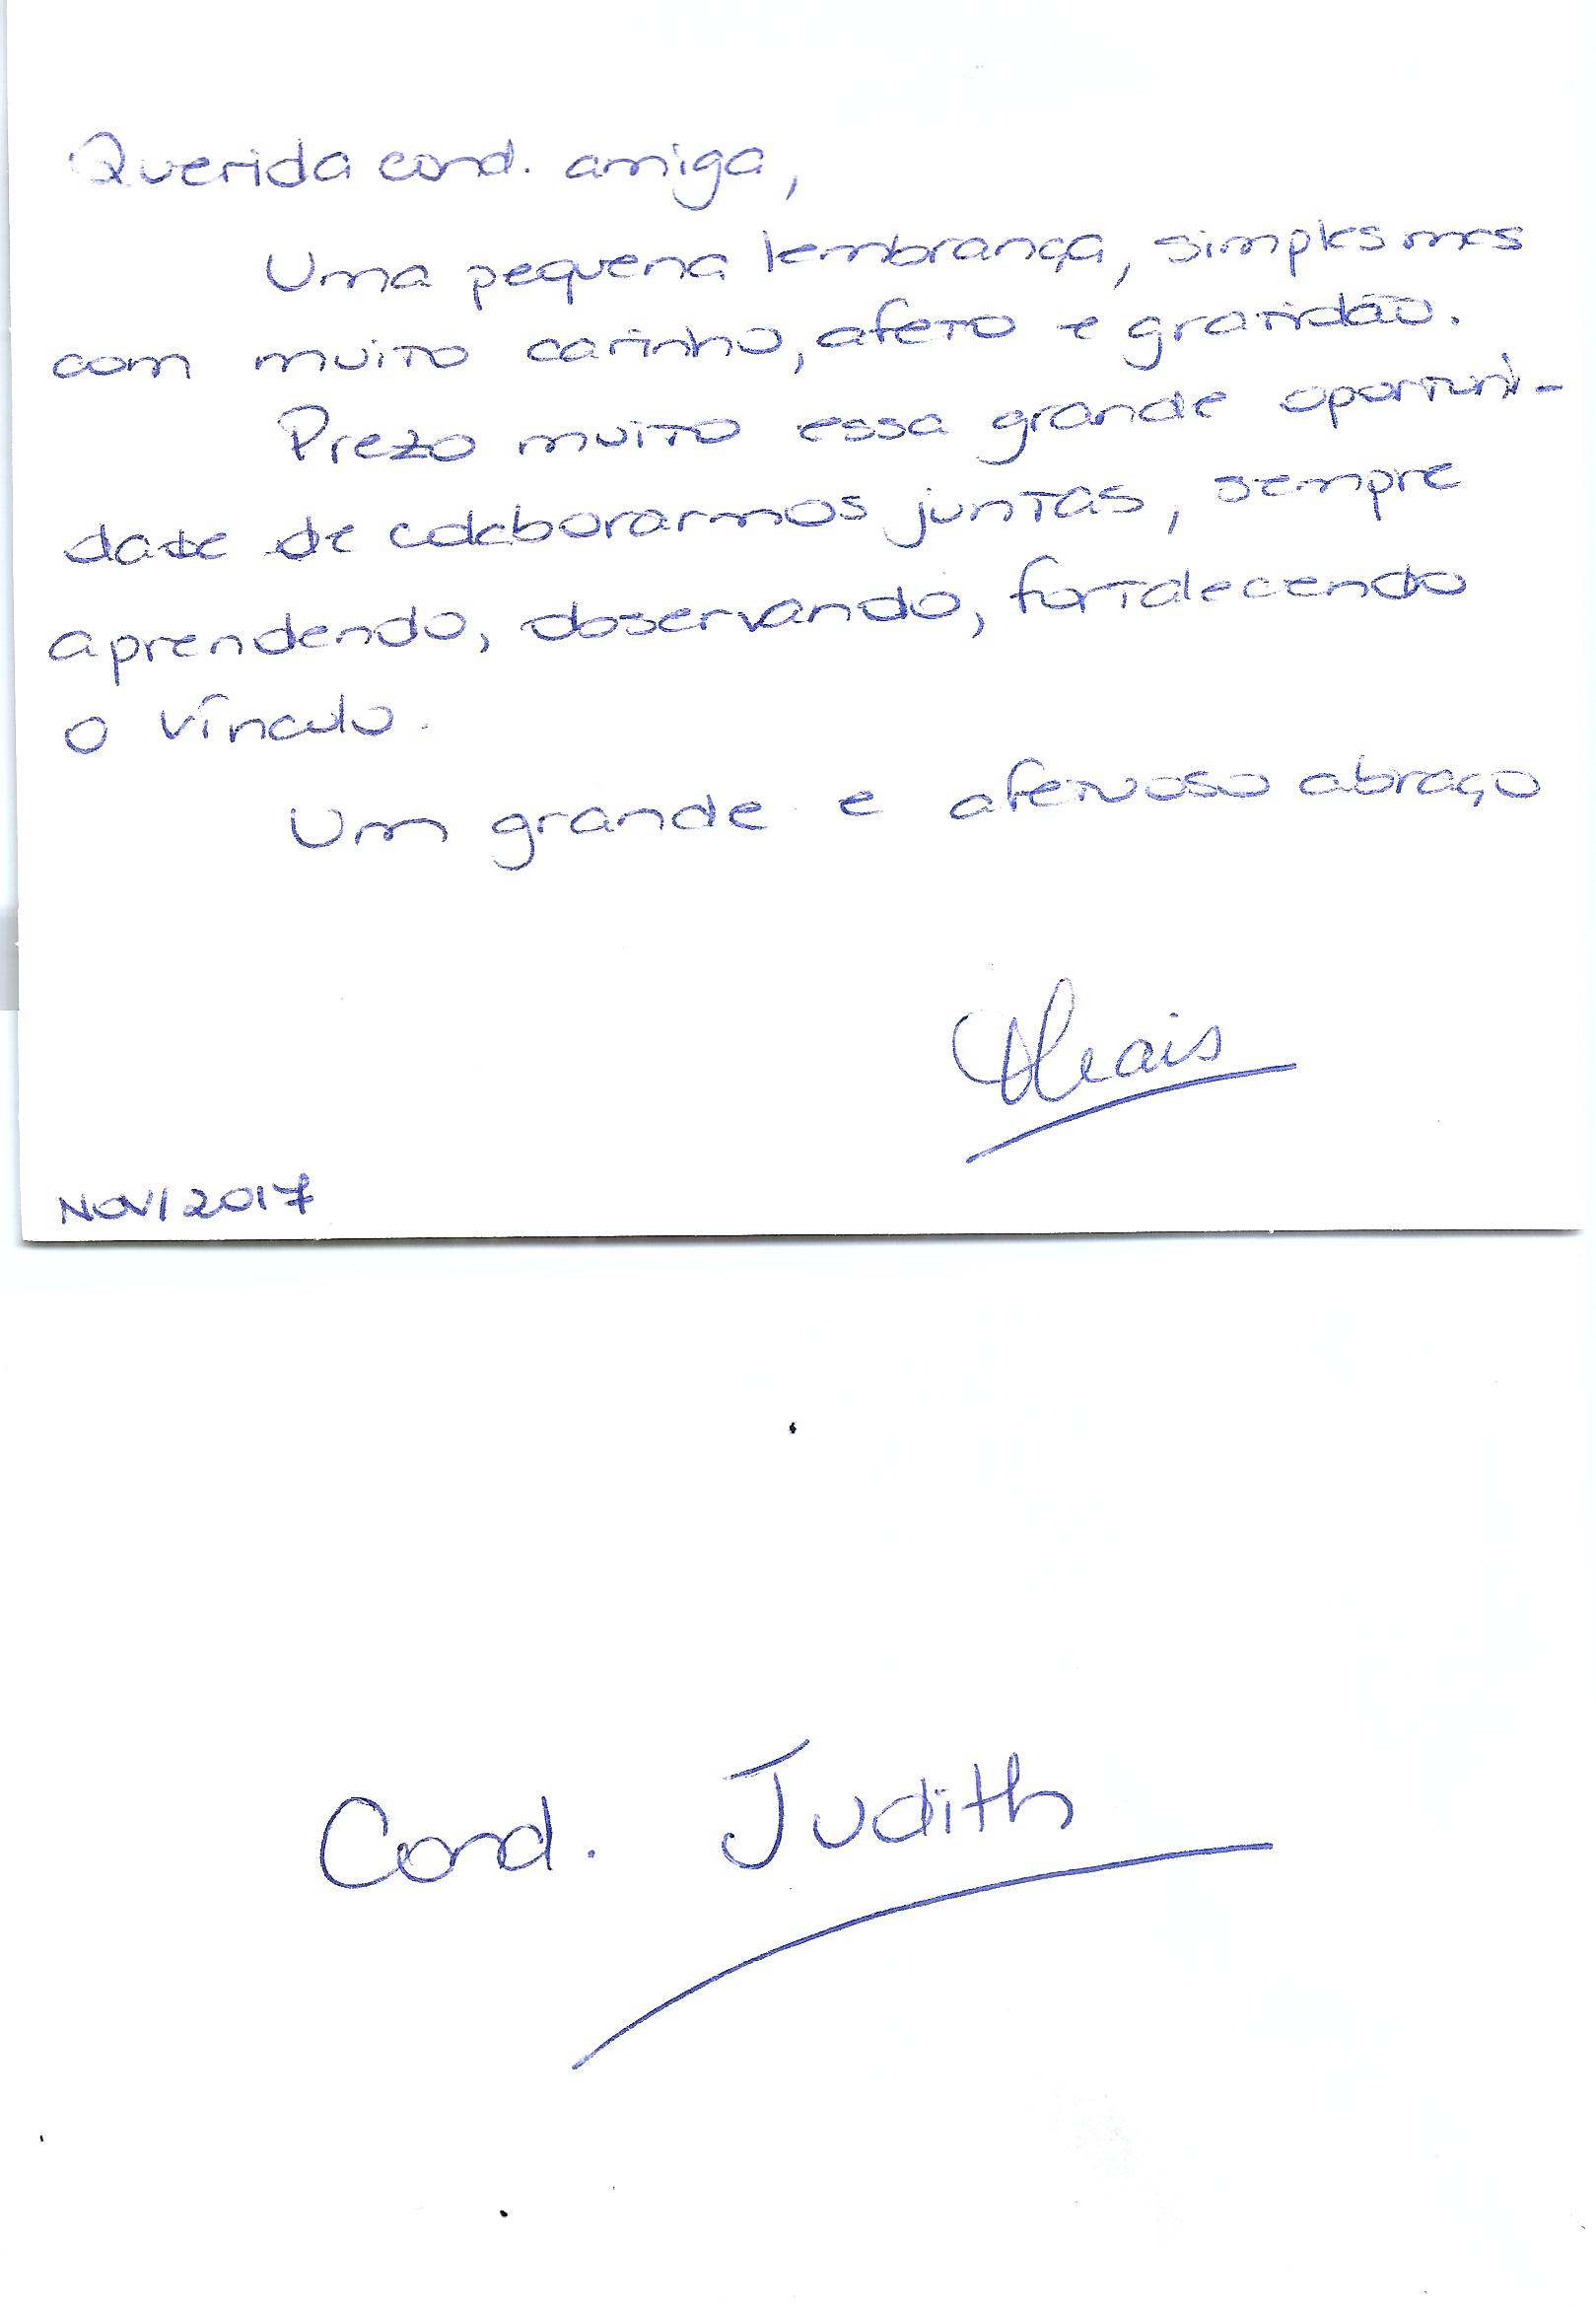 Querida cond. amiga,
Uma pequena lembrança, simples mas
com muito carinho, afeto e gratidão.
Prezo muito essa grande oportuni-
dade de colaborarmos juntas, sempre
aprendendo, observando, fortalecendo
o vínculo.
Um grande e afetuoso abraço
Thais
NOV/2017
Cond. Judith